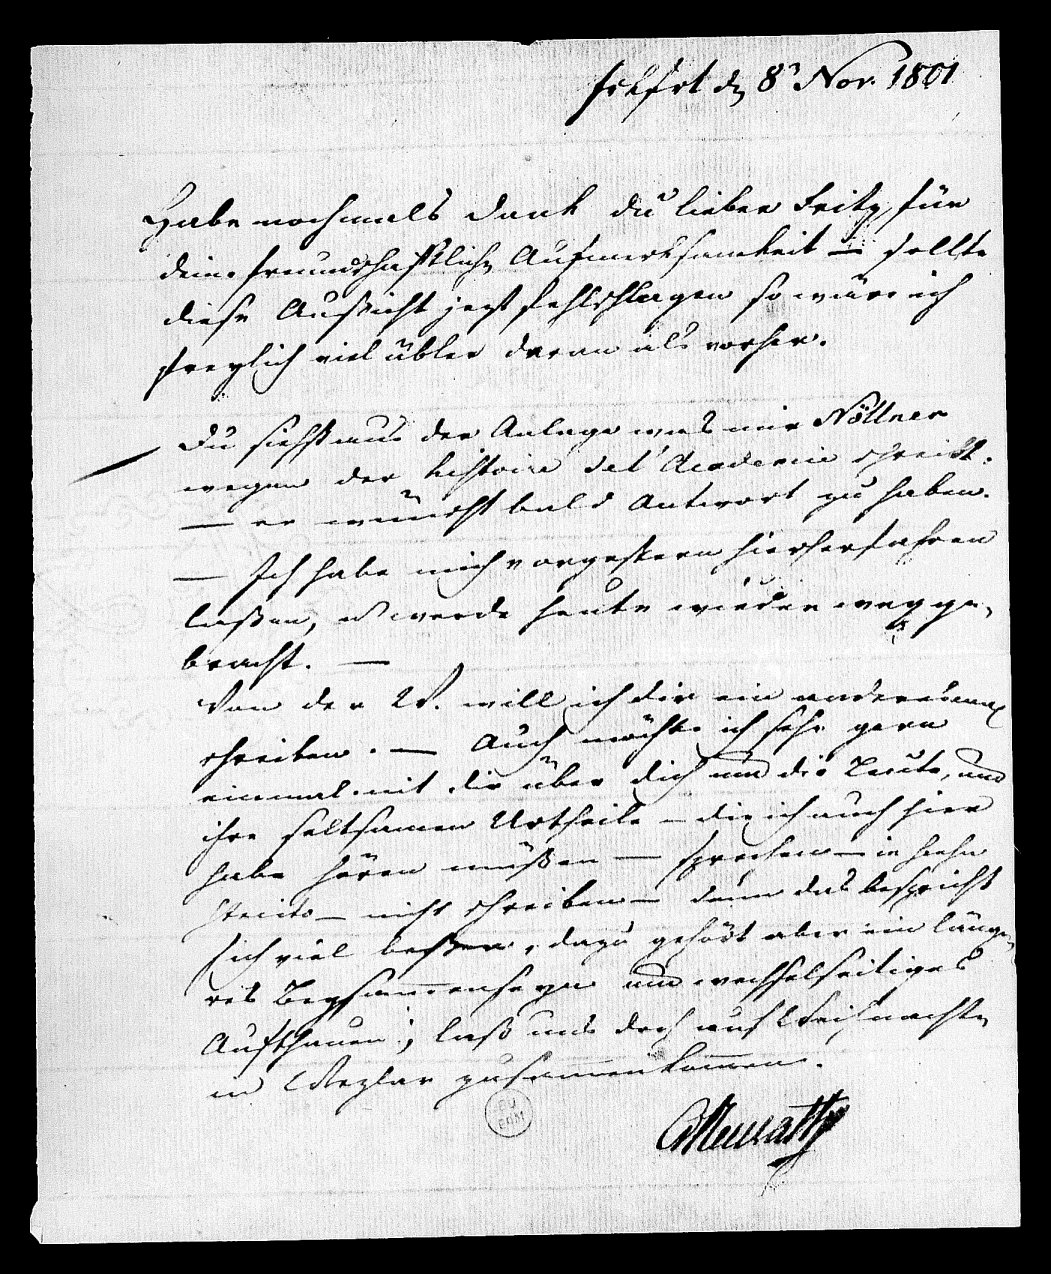 Frkfrt dn 8n Nov. 1801
Habe nochmals Dank du lieber Fritz, für
deine freundschaftliche Aufmerksamkeit — sollte
diese Aussicht jezt fehlschlagen so wäre ich
freylich viel übler daran als vorher.
Du siehst aus der Anlage was mir Nöllner
wegen der histoire de l'Academie schreibt.
— er wünscht bald Antwort zu haben.
— Ich habe mich vorgestern hierherfahren
laßen, u werde heute wieder wegge-
bracht. —
Von der V. will ich dir ein andermal
schreiben. — Auch möchte ich sehr gern
einmal mit dir über dich und die Leute, und
ihre seltsamen Urtheile — die ich auch hier
habe hören müßen — sprechen —
nicht schreiben — denn das bespricht
sich viel beßer, dazu gehört aber ein länge-
res Beysammenseyn und wechselseitiges
Aufthauen; laß uns doch auf Weihnachten
in Wezlar zusammenkommen.